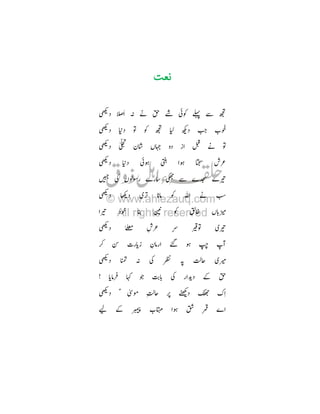 نعت
تجھ سے پہلے کوئی شے حق نے نہ اصلا دیکھی
خوب جب دیکھ لیا تجھ کو تو دنیا دیکھی
تو نے قبل از دو جہاں شان تجلّی دیکھی
عرش سجتا ہوا بنتی ہوئی دنیا دیکھی
تیرے سجدے سے جھکی سارے رسولوں کی جبیں
سب نے اللہ کو مانا تری دیکھا دیکھی
میزباں خالق کونین بنا تیرا
تیری توقیر سر عرشِ معلّےٰ دیکھی
آپ چپ ہو گئے ارمانِ زیارت سن کر
میری حالت پہ نظر کی نہ تمنا دیکھی
حق کے دیدار کی بابت جو کہا فرمایا !
اک جھلک دیکھنے پر حالتِ موسیٰ دیکھی
اے قمر شق ہوا مہتاب پیمبر کے لیے
حلقہ اہل ذوق
© www.ahlezauq.com
all rights reserved